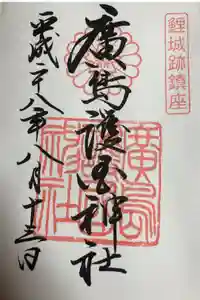 鯉城跡鎮座
廣島護国神社
平成廿八年八月十三日
廣島
護國
神社